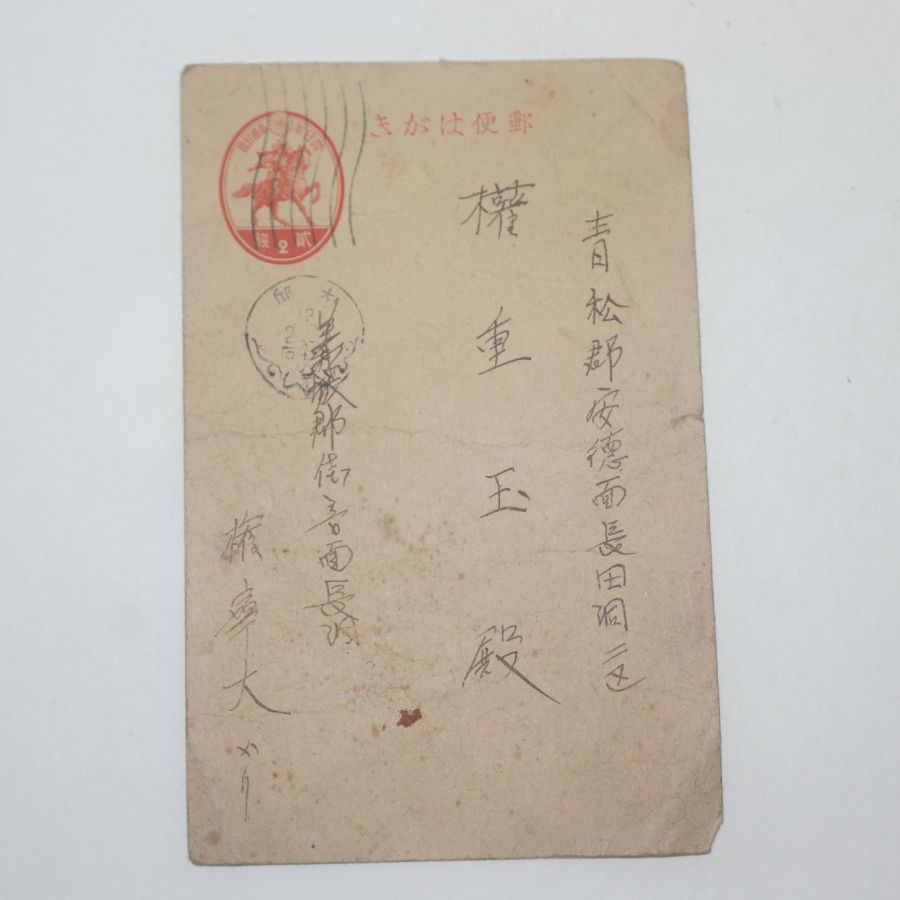 郵便はがき
貳2錢
青松郡安德面長田洞二区
權重玉殿
義城郡街音面長
權寧大より